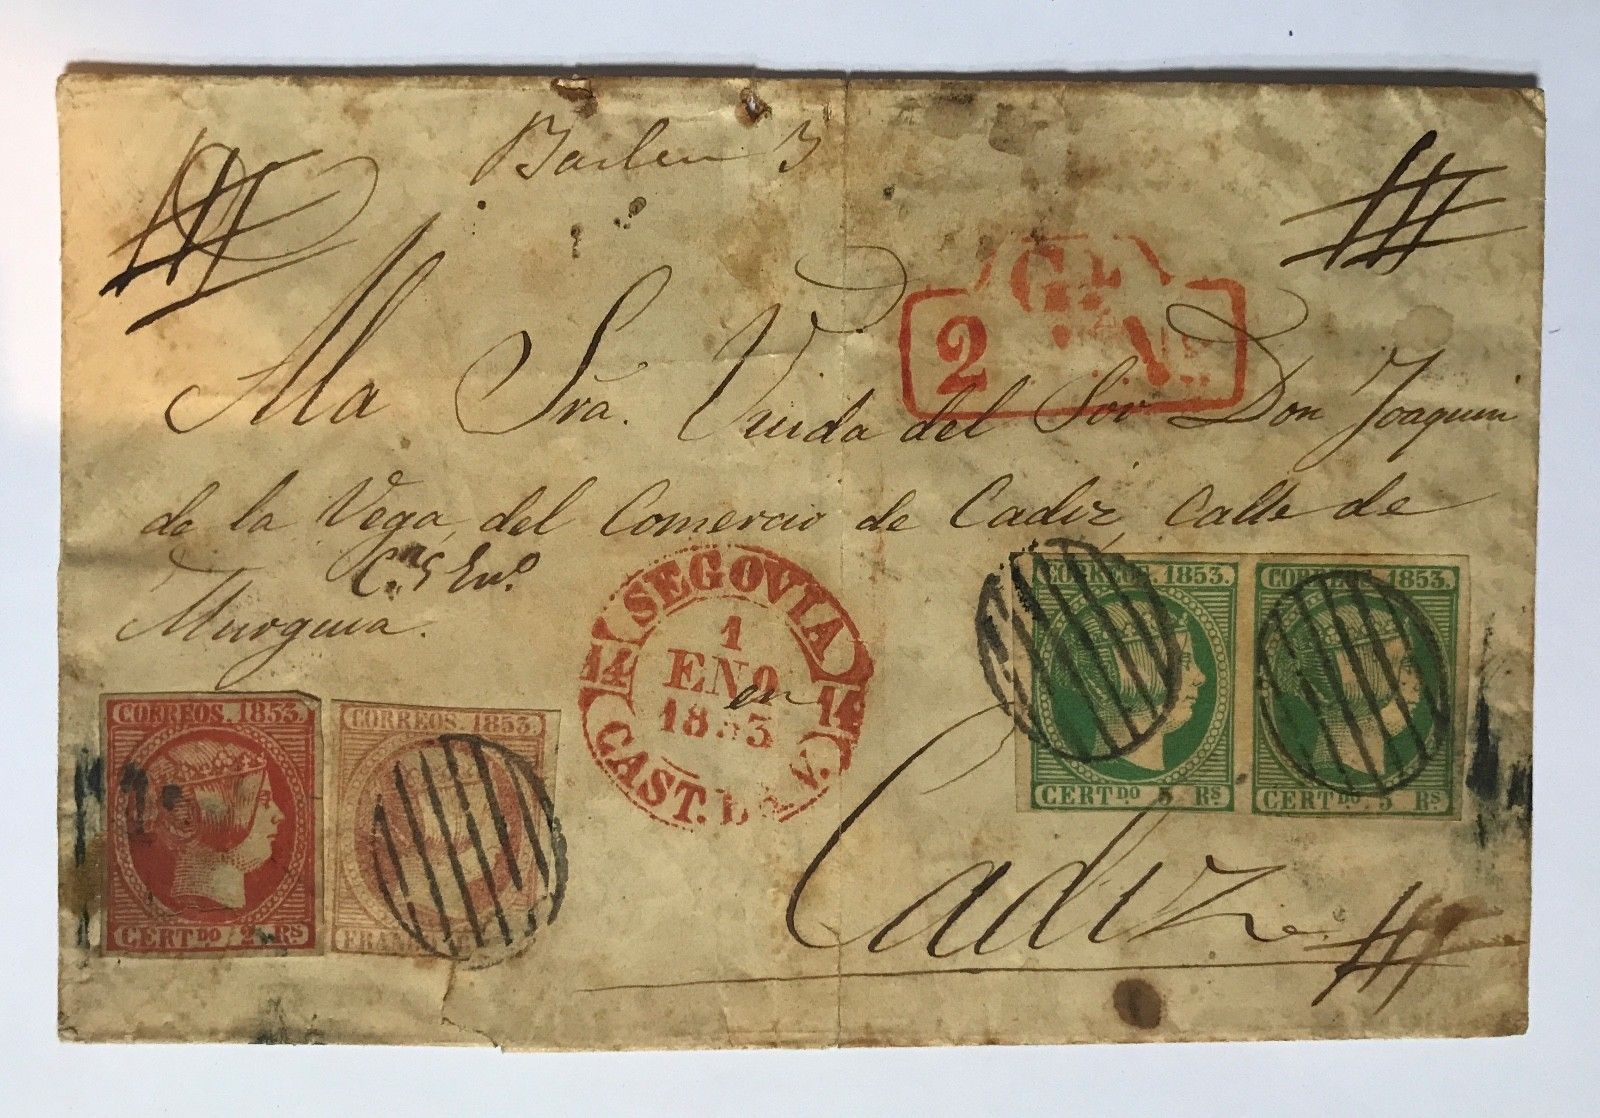 Bailen 3
Gª
2
A la Sra. Viuda del Sor Don Joaquin
de la Vega, del Comercio de Cadiz, Calle de
Murguia.
SEGOVIA
14 1 14
ENO
1853
CAST. LA V.
en
Cadiz
CORREOS. 1853.
CERTDO 2 RS
CORREOS. 1853.
FRAN
CORREOS. 1853.
CERTDO 5 RS
CORREOS. 1853.
CERTDO 5 RS